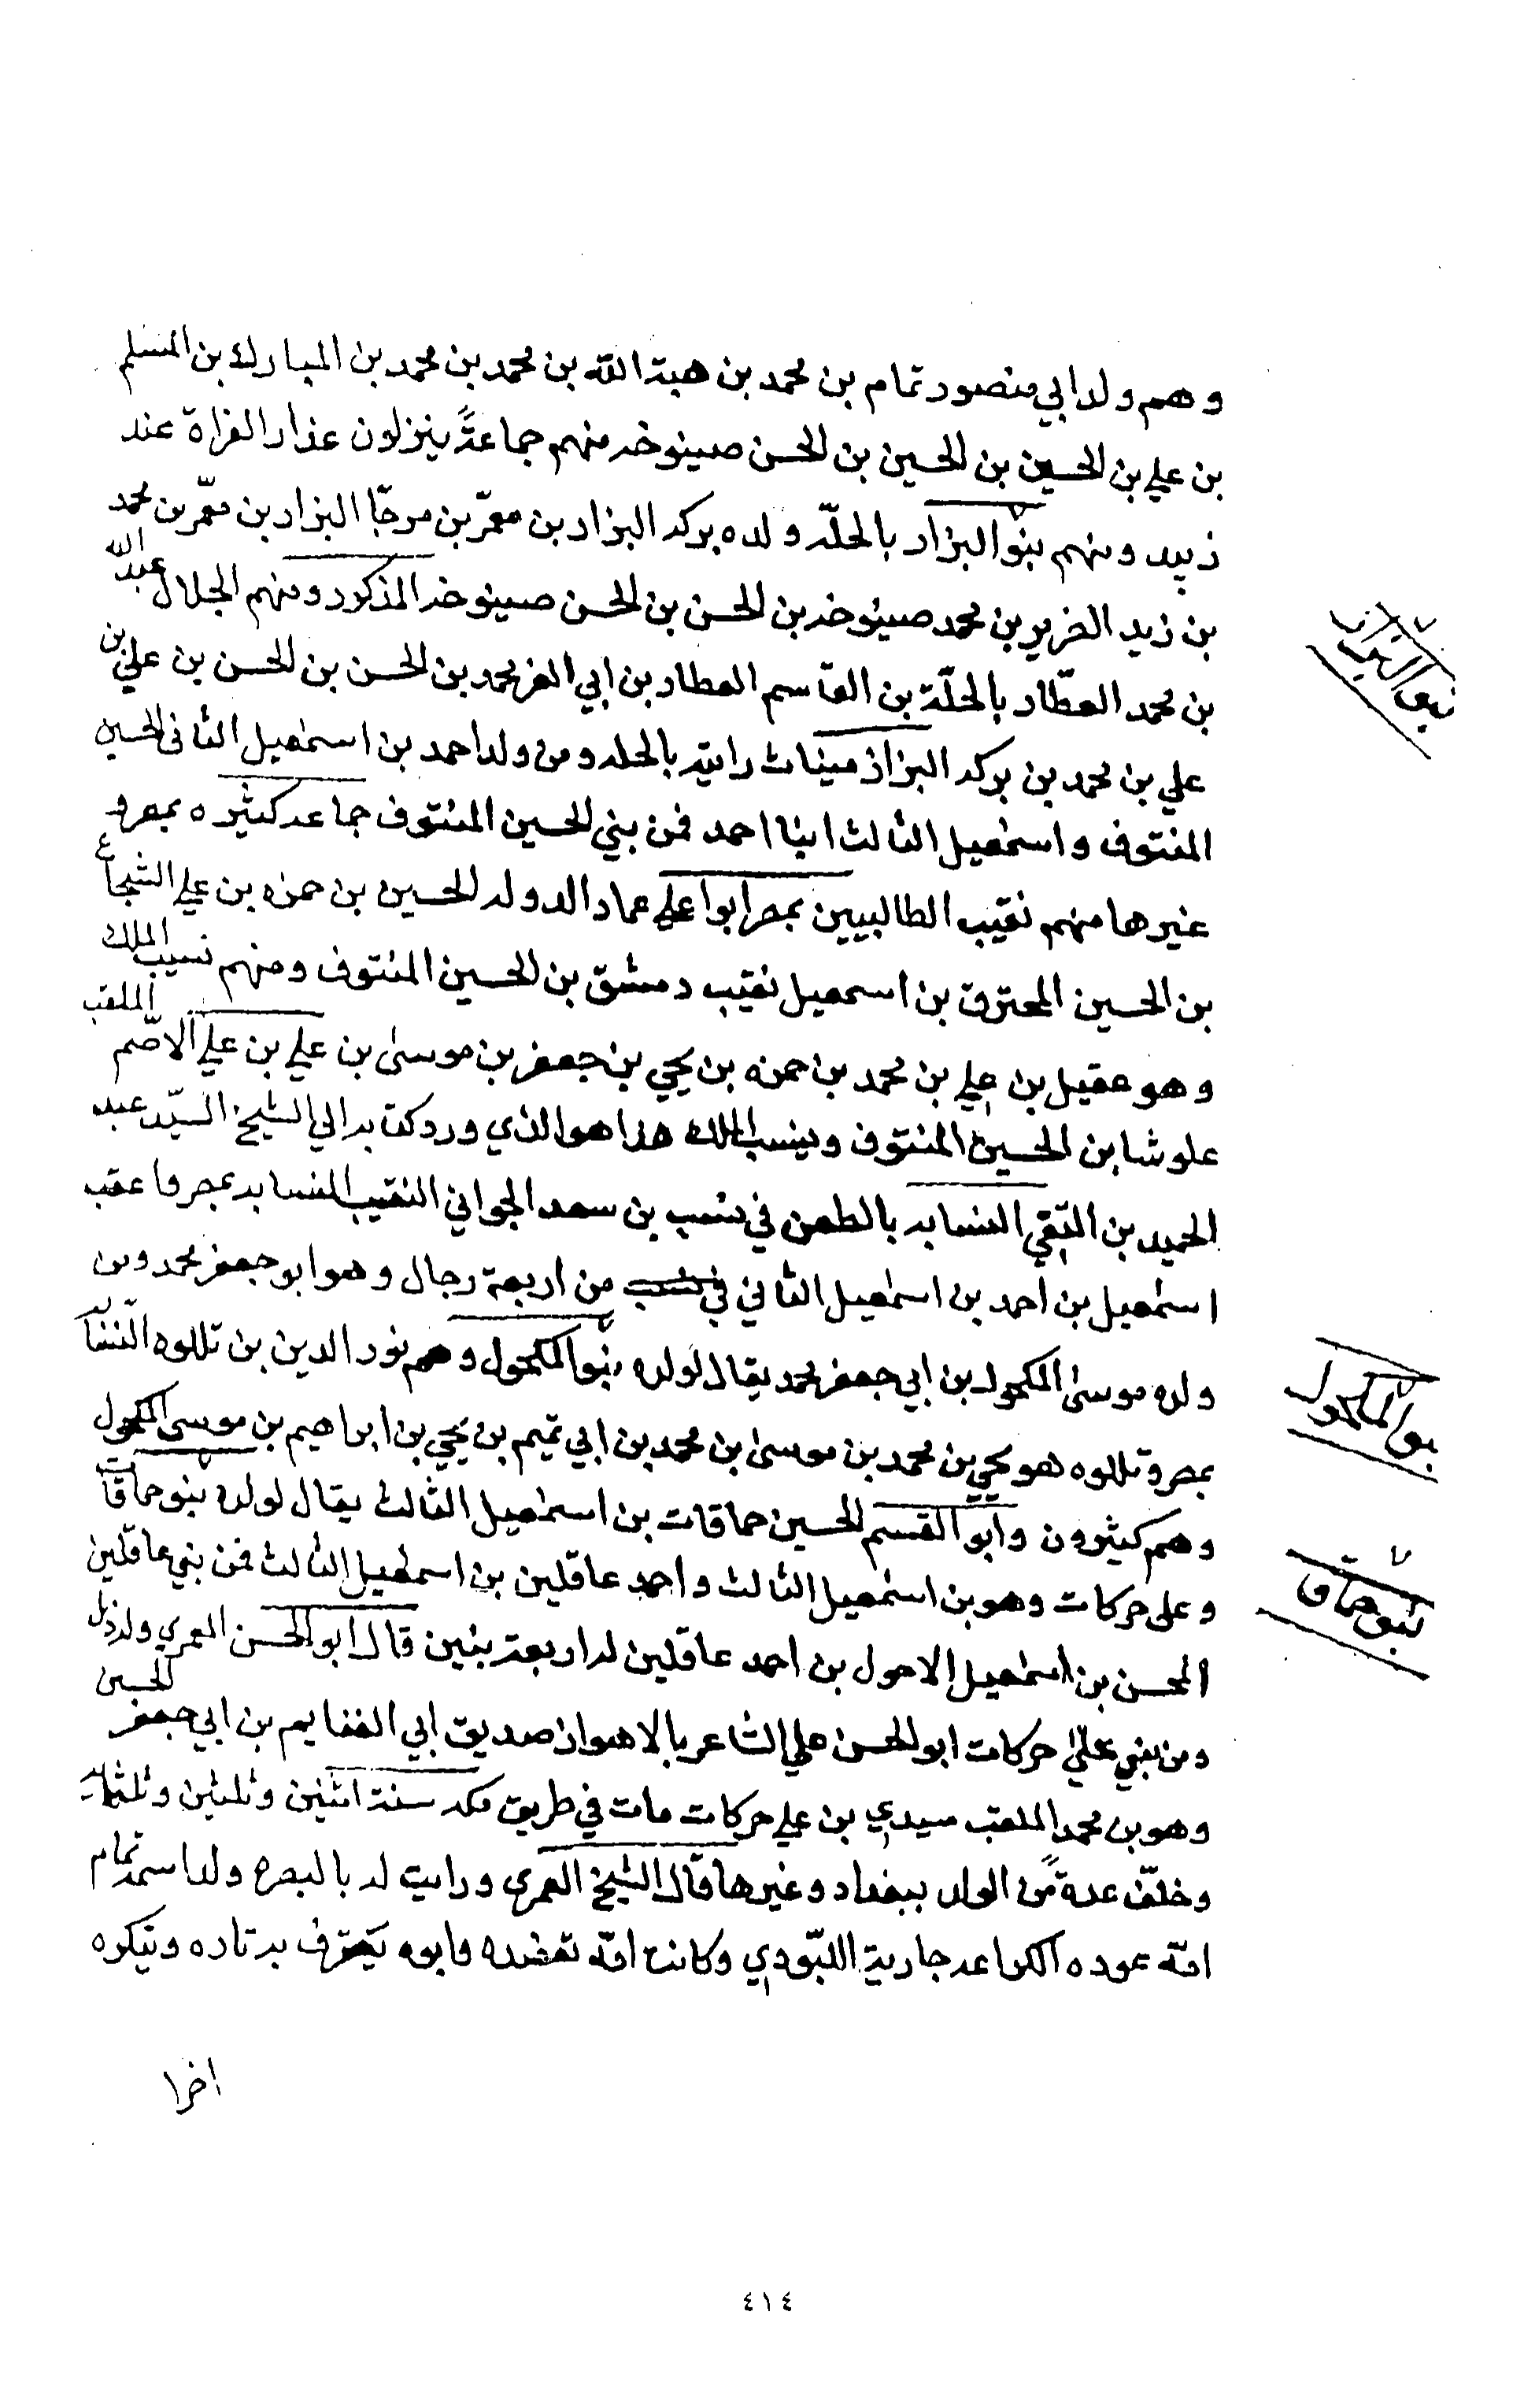 وهم ولد ابي منصور تمام بن محمد بن هبة الله بن محمد بن محمد بن المبارك بن المسلم
بن علي بن الحسين بن الحسين بن الحسن صبنوخه منهم جماعةً ينزلون عذار الفراة عند
زبيد ومنهم بنو البزار بالحلّه ولده بركه البزار بن معمّر بن مرجّا البزار بن معمّر بن محمد
بن زيد الضرير بن محمد صبنوخه بن الحسن بن الحسن صبنوخه المذكور ومنهم الجلال عبد الله
بن محمد العطّار بالحلّة بن القاسم العطار بن ابي العز محمد بن الحسن بن الحسن بن علي بن
علي بن محمد بن بركه البزاز مينات رايته بالحله ومن ولد احمد بن اسمعيل الثاني الحسين
المنتوف واسمعيل الثالث ابنا احمد فمن بني الحسين المنتوف جماعه كثيره بمصر و
غيرها منهم نقيب الطالبيين بمصر ابوا علي عماد الدوله الحسين بن حمزه بن علي الشجاع
بن الحسين المحترق بن اسمعيل نقيب دمشق بن الحسين المنتوف ومنهم نسيب الملك
وهو عقيل بن علي بن محمد بن حمزه بن يحيي بن جعفر بن موسى بن علي بن علي الاصّم الملقب
علوشا بن الحسين المنتوف وينسب الملك هذا هو الذي ورد كتابه الي الشيخ السيّد عبد
الحميد بن التقي النسابه بالطعن في نسب بن سعد الجواني النقيب النسابه بمصر فاعقب
اسمعيل بن احمد بن اسمعيل الثاني في من اربعة رجال وهو ابو جعفر محمد ومن
ولده موسى المكحول بن ابي جعفر محمد يقال لولده بنو المكحول وهم نور الدين بن تللوه النسابه
بمصر وتللوه هو يحيي بن محمد بن موسى بن محمد بن ابي تميم بن يحيي بن ابراهيم بن موسى المكحول
وهم كثيرون وابو القسم الحسين حماقات بن اسمعيل الثالث يقال لولده بنو حماقات
وعلى حركات وهو بن اسمعيل الثالث واحمد عاقلين بن اسمعيل الثالث فمن بني عاقلين
المحسن بن اسمعيل الاحول بن احمد عاقلين له اربعة بنين قال ابو الحسن العمري ولد ذيل
ومن بني علي حركات ابو الحسن علي الشاعر بالاهواز صديق ابي الغنايم بن ابي جعفر الحسين
وهو بن محمد الملقب سيدي بن علي حركات مات في طريق مكه سنة اثنين وثلثين وثلثمايه
وخلّف عدةً من الولد ببغداد وغيرها قال الشيخ العمري ورايت له بالبصره ولدا اسمه تمام
امّه عوده الكواعد جارية اللبّودي وكانت امّه تعضده وابوه يعترف به تاره وينكره
اخرا
بنو البزار
بنو المكحول
بنو حماقا
٤١٤